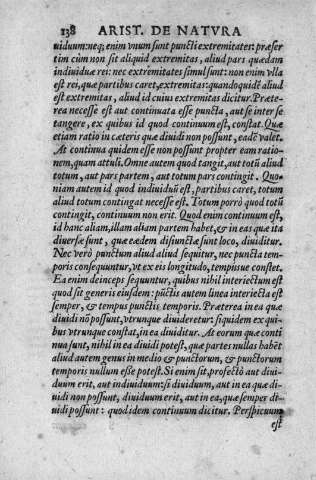 138 ARIST. DE NATVRA
uiduum: neq; enim vnum sunt puncti extremitates: præser
tim cùm non sit aliquid extremitas, aliud pars quædam
indiuiduæ rei: nec extremitates simul sunt: non enim vlla
est rei, quæ partibus caret, extremitas: quandoquidē aliud
est extremitas, aliud id cuius extremitas dicitur. Præte-
rea necesse est aut continuata esse puncta, aut se inter se
tangere, ex quibus id quod continuum est, constat. Quæ
etiam ratio in cæteris quæ diuidi non possunt, eadē valet.
At continua quidem esse non possunt propter eam ratio-
nem, quam attuli. Omne autem quod tangit, aut totū aliud
totum, aut pars partem, aut totum pars contingit. Quo-
niam autem id quod indiuiduū est, partibus caret, totum
aliud totum contingat necesse est. Totum porrò quod totū
contingit, continuum non erit. Quod enim continuum est,
id hanc aliam, illam aliam partem habet, & in eas quæ ita
diuersæ sunt, quæ eædem disiunctæ sunt loco, diuiditur.
Nec verò punctum aliud aliud sequitur, nec puncta tem-
poris consequuntur, vt ex eis longitudo, tempúsue constet.
Ea enim deinceps sequuntur, quibus nihil interiectum est
quod sit generis eiusdem: pūctis autem linea interiecta est
semper, & tempus punctis temporis. Præterea in ea quæ
diuidi nō possunt, vtrunque diuideretur: siquidem ex qui-
bus vtrunque constat, in ea diuiditur. At eorum quæ conti
nua sunt, nihil in ea diuidi potest, quæ partes nullas habēt
aliud autem genus in medio & punctorum, & punctorum
temporis nullum esse potest. Si enim sit, profectò aut diui-
duum erit, aut indiuiduum: si diuiduum, aut in ea quæ di-
uidi non possunt, diuiduum erit, aut in ea, quæ semper di-
uidi possunt: quod idem continuum dicitur. Perspicuum
est